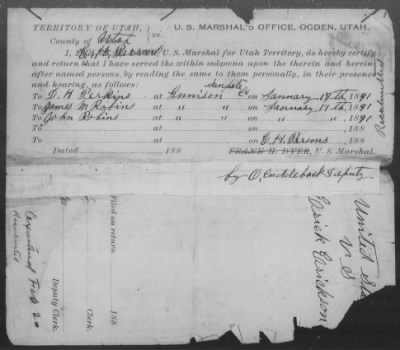 TERRITORY OF UTAH,
County of
ss.
U. S. MARSHAL'S OFFICE, OGDEN, UTAH.
I, E. H. Parsons U. S. Marshal for Utah Territory, do hereby certify
and return that I have served the within subpœna upon the therein and herein-
after named persons, by reading the same to them personally, in their presence
and hearing, as follows:
To D. H. Perkins at Gunnison on January 17th 1891
To James M Robins at " " on January 17th 1891
To John Robins at " " on " " 1891
To at on 188
To at E. H. Parsons
Dated 188 FRANK H. DYER, U. S. Marshal.
by O, Deputy
Filed on return
188
Clerk.
Deputy Clerk.
United
vs
Erick Erickson
Feb 20